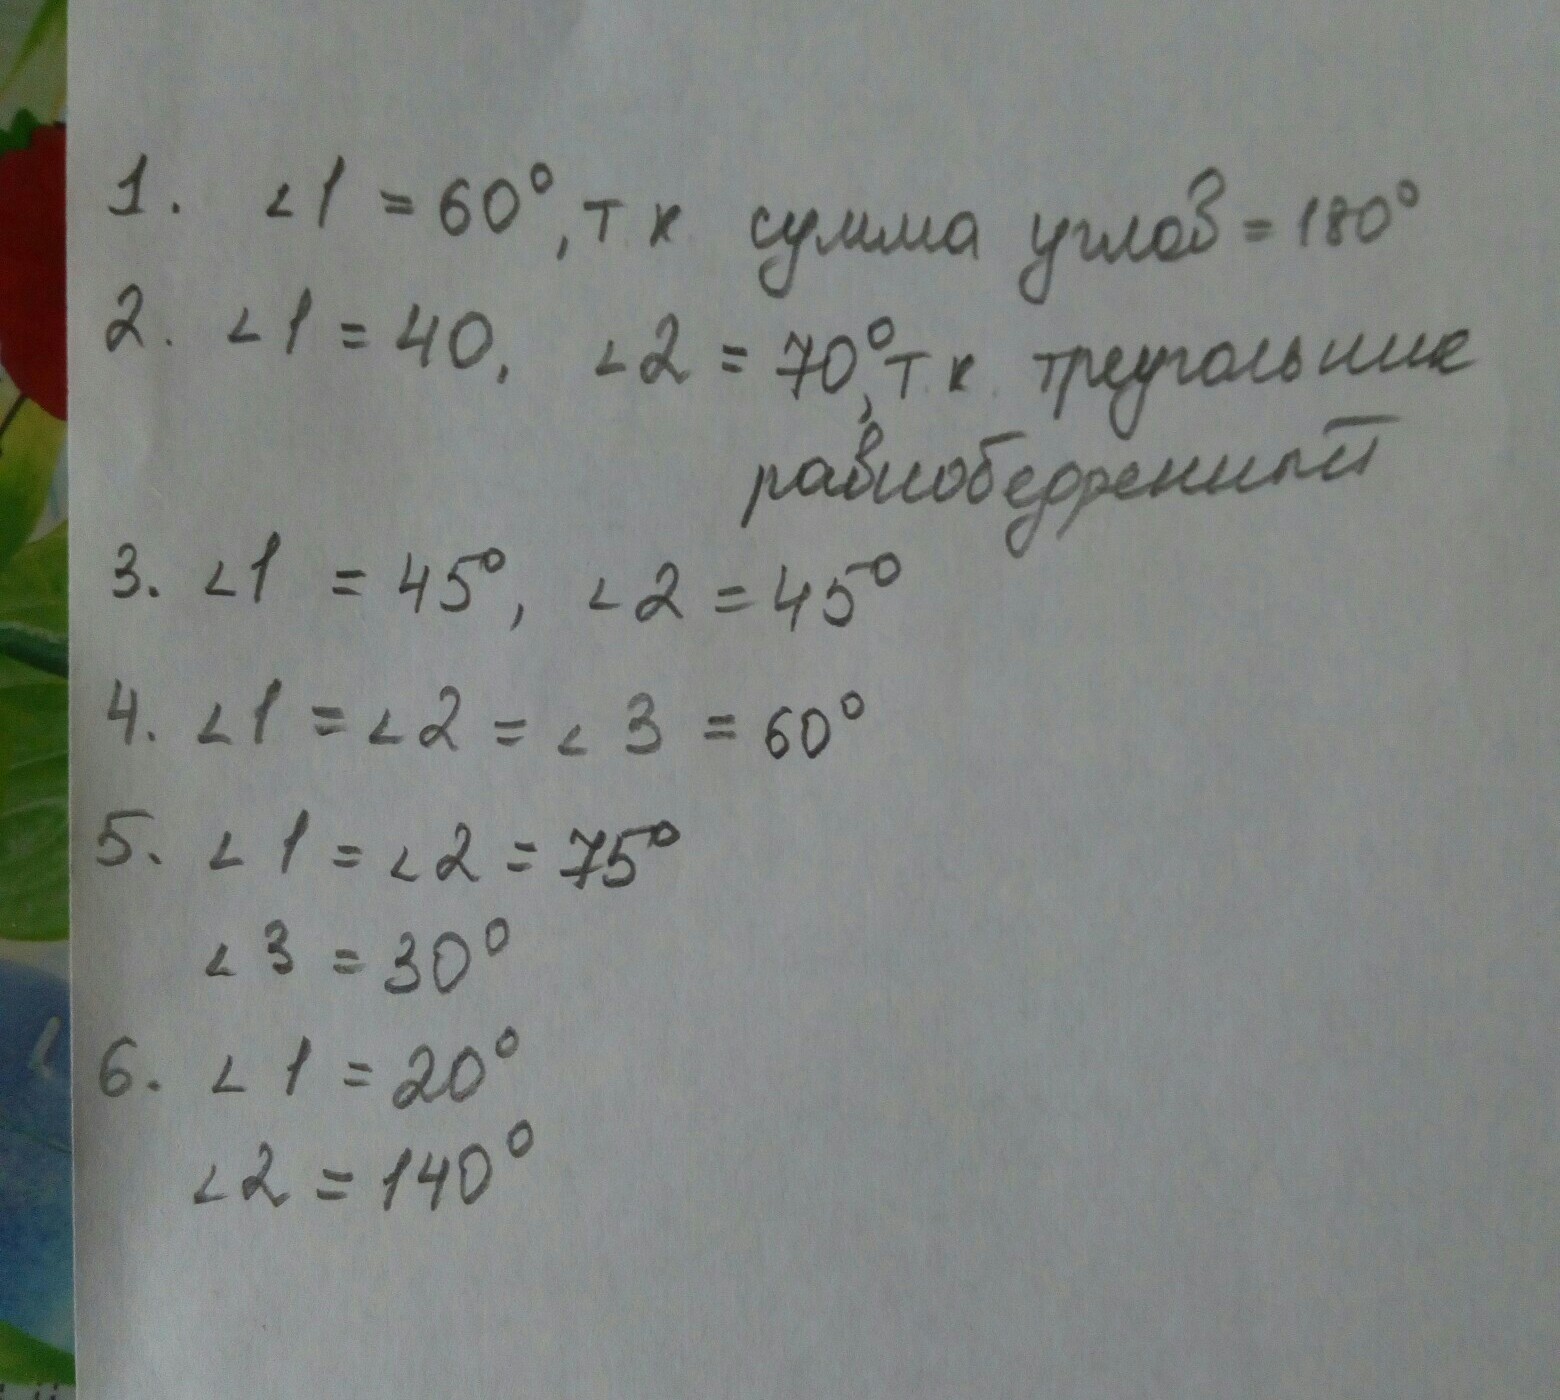 1. ∠1 = 60°, т.к сумма углов = 180°
2. ∠1 = 40, ∠2 = 70°, т.к. треугольник
равнобедренный
3. ∠1 = 45°, ∠2 = 45°
4. ∠1 = ∠2 = ∠3 = 60°
5. ∠1 = ∠2 = 75°
∠3 = 30°
6. ∠1 = 20°
∠2 = 140°